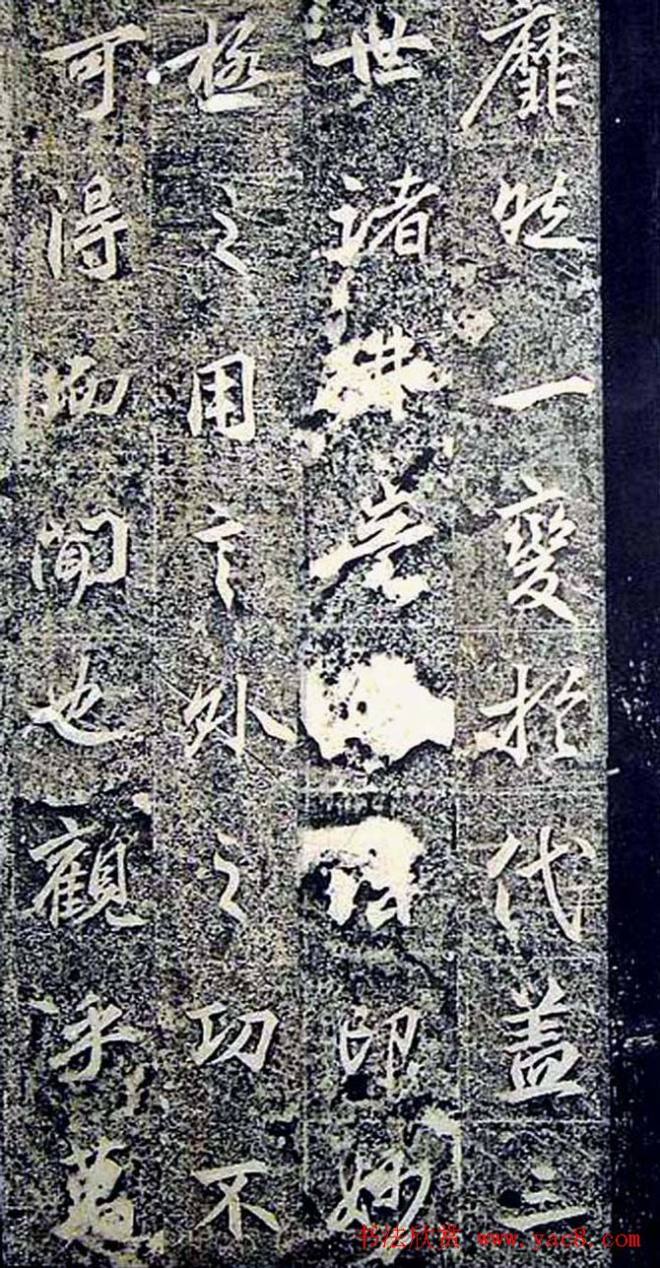 靡一變於代蓋三
世諸印妙
極之用言外之功不
可得聞也觀乎萬
书法欣赏 www.yac8.com